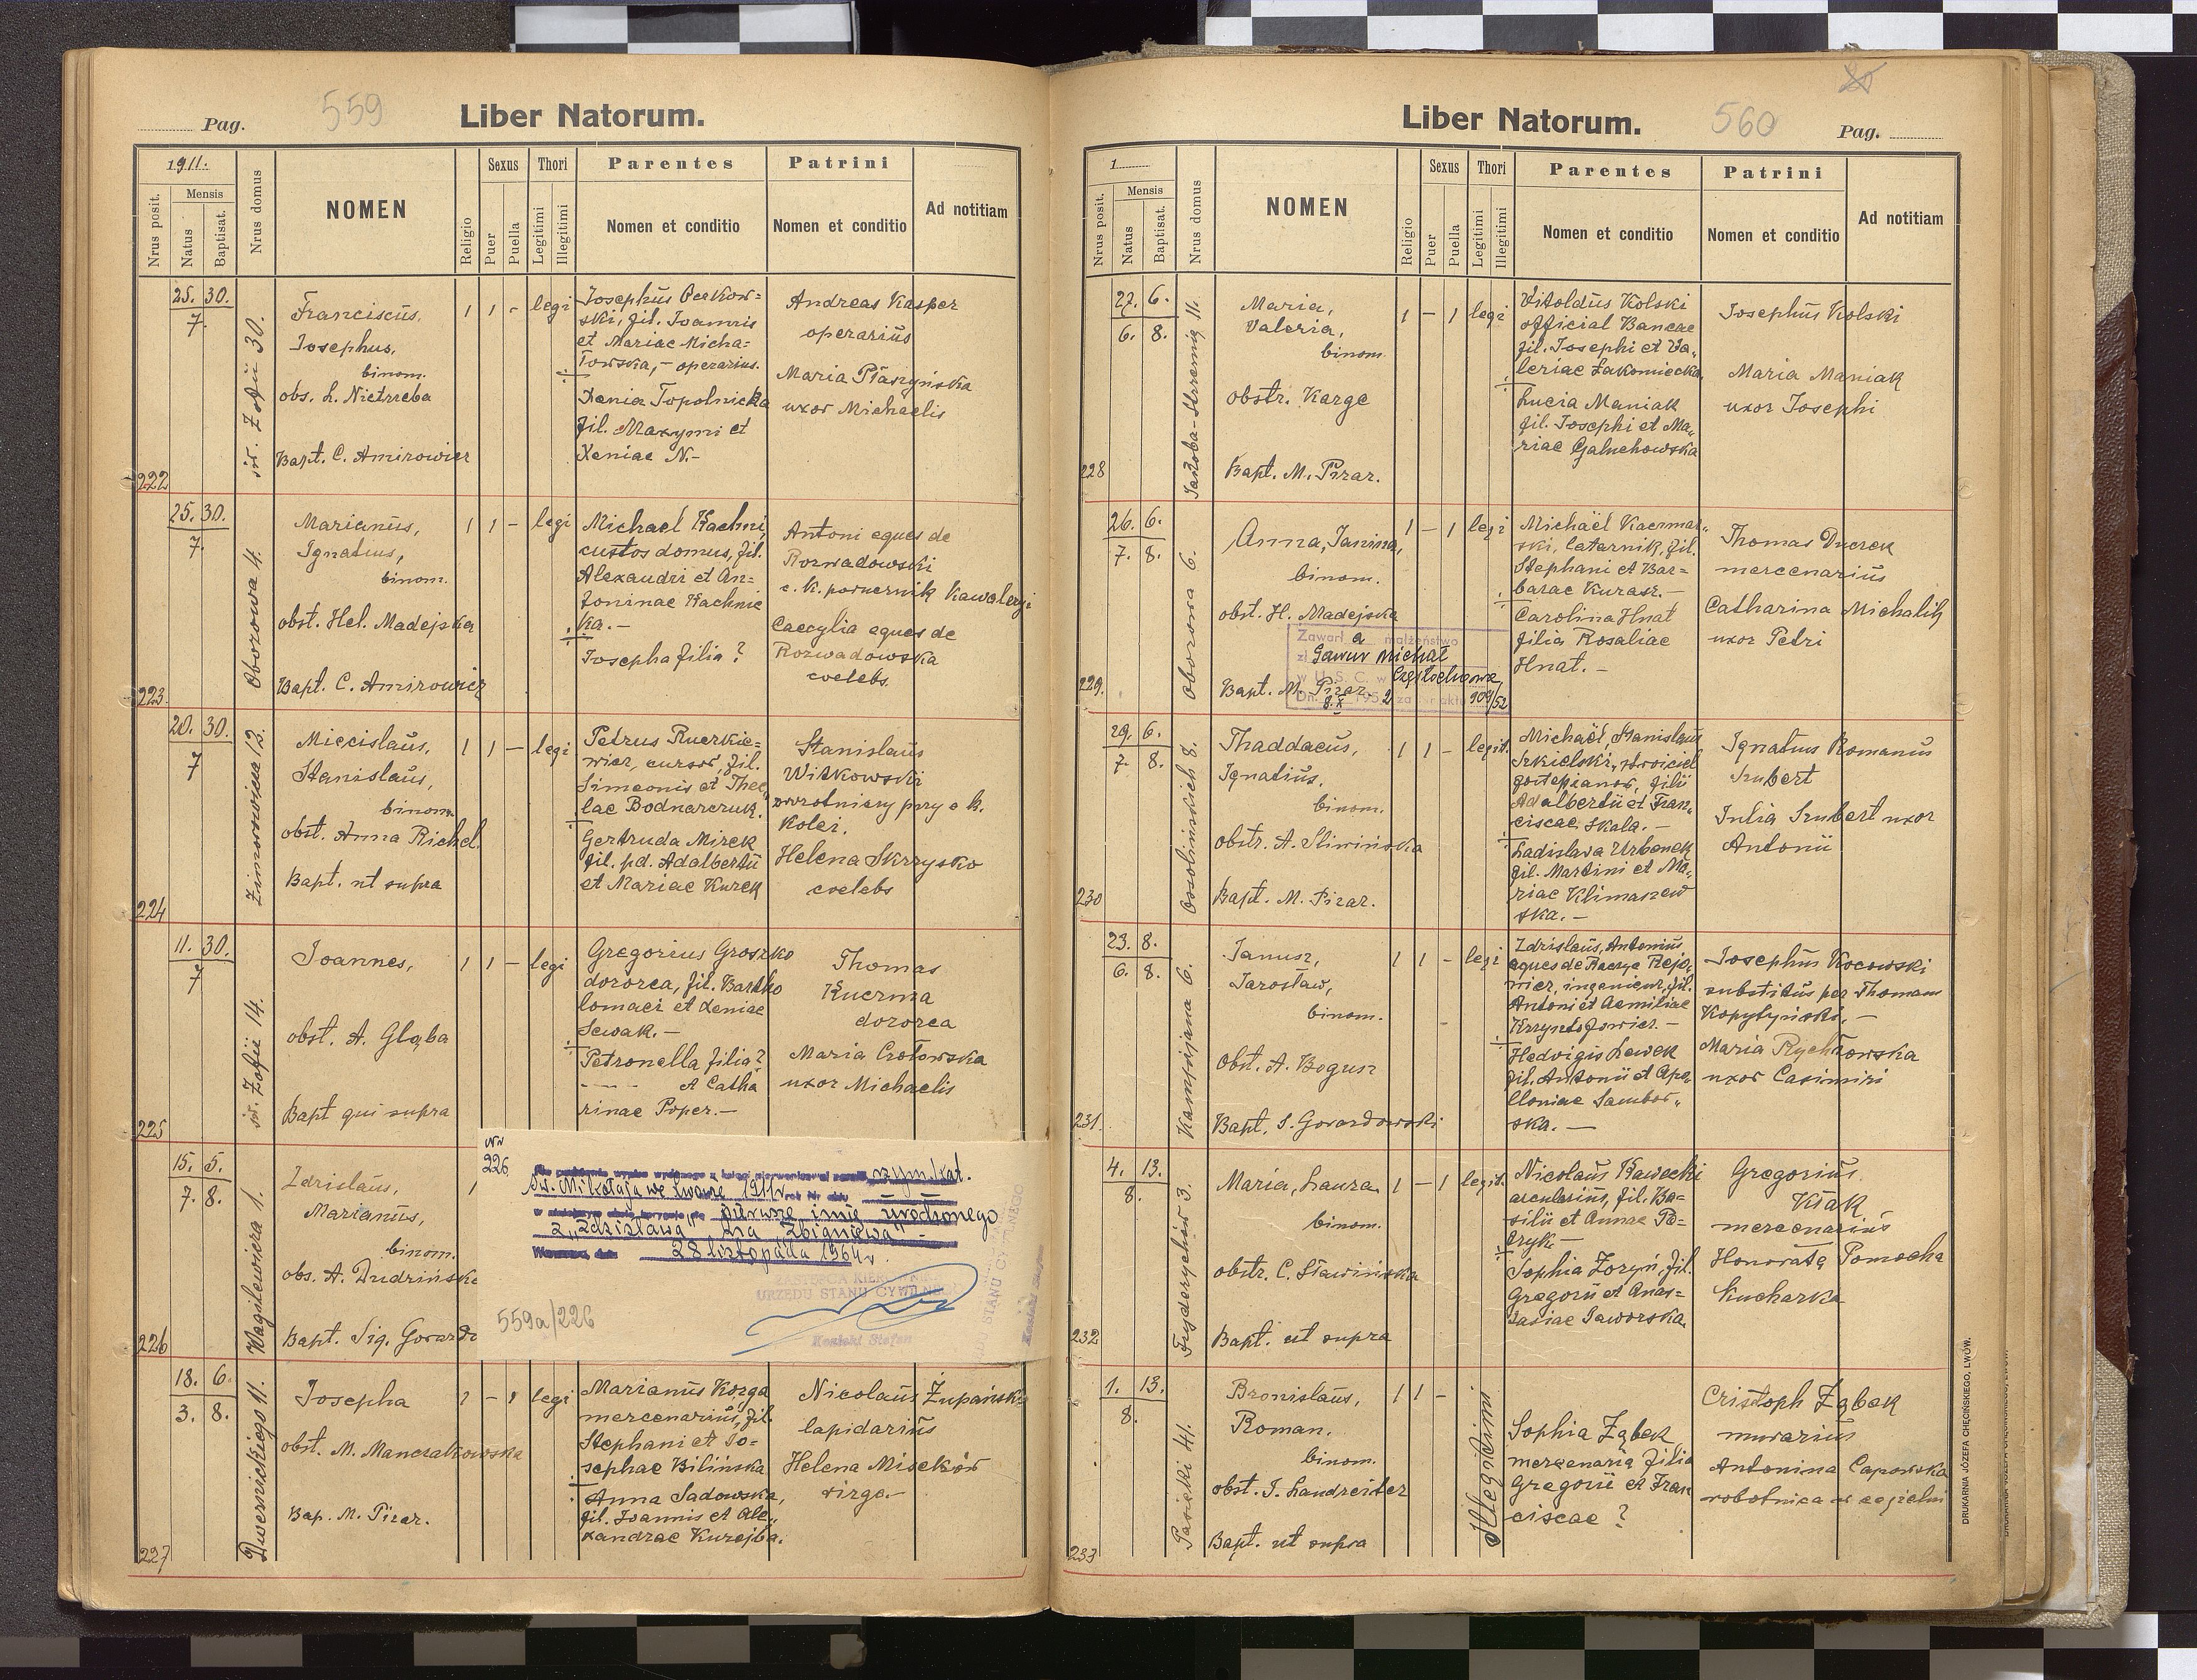 Pag.
559
Liber Natorum.
1911.
Nrus posit.
Mensis
Natus
Baptisat.
Nrus domus
NOMEN
Religio
Sexus
Puer
Puella
Thori
Legitimi
Illegitimi
Parentes
Nomen et conditio
Patrini
Nomen et conditio
Ad notitiam
222
25. 30.
7.
św. Zofii 30.
Franciscus,
Josephus,
binom.
obs. L. Nietrzeba
Bapt. C. Amirowicz
1 1 - legi
ski, fil. Joannis
et Mariae Micha=
łowska, - operarius.
Xenia Topolnicka
fil. Maxymi et
Xeniae N.-
Andreas Kasper
operarius
Maria Płaszyńska
uxor Michaelis
223
25. 30.
7.
Oborowa 4.
Marianus,
Ignatius,
binom.
obst. Hel. Madejska
Bapt. C. Amirowicz
1 1 - legi
Michael
custos domus, fil.
Alexandri et An=
toninae
ka.-
Josepha filia ?
Antoni eques de
Rozwadowski
c. k. porucznik Kawaleryi
Caecylia eques de
Rozwadowska
coelebs.
224
20. 30.
7
Zimorowicza 13.
Miecislaus,
Stanislaus,
binom.
obst. Anna Richel.
Bapt. ut supra
1 1 - legi
Petrus Ruczkie=
wicz, cursor, fil.
Simeonis et Thec
lae Bodnarczuk.
Gertruda Mirek
fil. pd. Adalbertii
et Mariae Kurek
Stanislaus
Witkowski
zwrotniczy przy c k.
Kolei.
Helena Skrzysko
coelebs
225
11. 30.
7
św. Zofii 14.
Joannes,
obst. A. Głąba
Bapt qui supra
1 1 - legi
Gregorius Groszko
dozorca, fil. Bartho
lomaei et Xeniae
Sewak.-
Petronella filia?
et Catha
rinae Poper.-
Thomas
Kuczma
dozorca
Maria Czołowska
uxor Michaelis
226
15. 5.
7. 8.
Wagilewicza 1.
Zdzislaus,
Marianus,
binom.
obs. A. Dudzińska
Bapt. Sig. Gorazdo
Nr
226
rzym. kat.
św. Mikołaja we Lwowie 1911 r.
pierwsze imię urodzonego
z „Zdzisława" na „Zbigniewa" -
28 listopada 1964 r.
URZĘDU STANU CYWILNEGO
Kosicki Stefan
559a/226
227
18. 6.
3. 8.
Dwernickiego 11.
Josepha
obst. M. Manczakowska
Bap. M. Pizar.
1 - 1 legi
Marianus Kozga
mercenarius, fil.
Stephani et Jo=
sephae Bilińska
Anna Sadowska,
fil. Joannis et Ale„
xandrae Kurejba.
Nicolaus Żupański
lapidarius
Helena Miseków
virgo.-
Liber Natorum.
560
Pag.
1
Nrus posit.
Mensis
Natus
Baptisat.
Nrus domus
NOMEN
Religio
Sexus
Puer
Puella
Thori
Legitimi
Illegitimi
Parentes
Nomen et conditio
Patrini
Nomen et conditio
Ad notitiam
228
27. 6.
6. 8.
Maria,
Valeria,
binom.
obstr. Karge
Bapt. M. Pizar.
1 - 1 legi
Vitoldus Kolski
official Bancae
fil. Josephi et Va„
leriae Łakomiecka,
Lucia Maniak
fil. Josephi et Ma„
riae Galuchowska
Josephus Kolski
Maria Maniak
uxor Josephi
229.
26. 6.
7. 8.
Oborowa 6.
Anna, Janina,
binom.
obst. H. Madejska
Bapt. M. Pizar.
Zawarł a małżeństwo
z Gawur Michał
w U.S.C. w Częstochowa
Dn. 8.X 1952 za nr aktu 909/52
1 - 1 legi
Michaël Kaczmar„
ski, latarnik, fil.
Stephani et Bar=
barae Kurasz.-
Carolina Hnat
filia Rosaliae
Hnat.-
Thomas Duczek
mercenarius
Catharina Michalik
uxor Petri
230
29. 6.
7. 8.
Ossolińskich 8.
Thaddaeus,
Ignatius,
binom.
obstr. A. Śliwińska
Bapt. M. Pizar.
1 1 - legit.
Michaël, Stanislaus
Szkielski, stroiciel
fortepianów, filii
Adalbertii et Fran„
ciscae Skala.-
Ladislava Urbanek
fil. Martini et Ma„
riae Klimaszew
ska.-
Ignatius Romanus
Szubert
Julia Szubert uxor
Antonii
231.
23. 8.
6. 8.
Kampijana 6.
Janusz,
Jarosław,
binom.
Obst. A. Bogusz
Bapt. S. Gorazdowski
1 1 - legi
Zdzislaus, Antonius
wicz, ingenieur, fil.
Antoni et Aemiliae
Krzysztofowicz.-
Hedvigis Lewek
fil. Antonii et Apo„
lloniae Sambor„
ska.-
Josephus Kocowski
substitus per Thomam
Kopytyński.-
Maria Rychłowska
uxor Casimiri
232
4. 13.
8.
Fryderychów 3.
Maria, Laura
binom.
obstr. C. Sławińska
Bapt. ut supra
1 - 1 legit.
Nicolaus Kawecki
arcularius, fil. Ba=
silii et Annae Pa=
Sophia Zoryń, fil.
Gregorii et Anas=
tasiae Jaworska.
Gregorius
Kłak
mercenarius
Honorata Pomocha
kucharka
233
1. 13.
8.
Pasieki 41.
Bronislaus,
Roman,
binom.
obst. J. Landreiter
Bapt. ut supra
1 1 -
Illegitimi
Sophia Ząbek
mercenaria filia
Gregorii et Fran
ciscae ?
Cristoph Ząbek
murarius
Antonina Capowska
robotnica w cegielni
DRUKARNIA JÓZEFA CHĘCIŃSKIEGO, LWÓW.